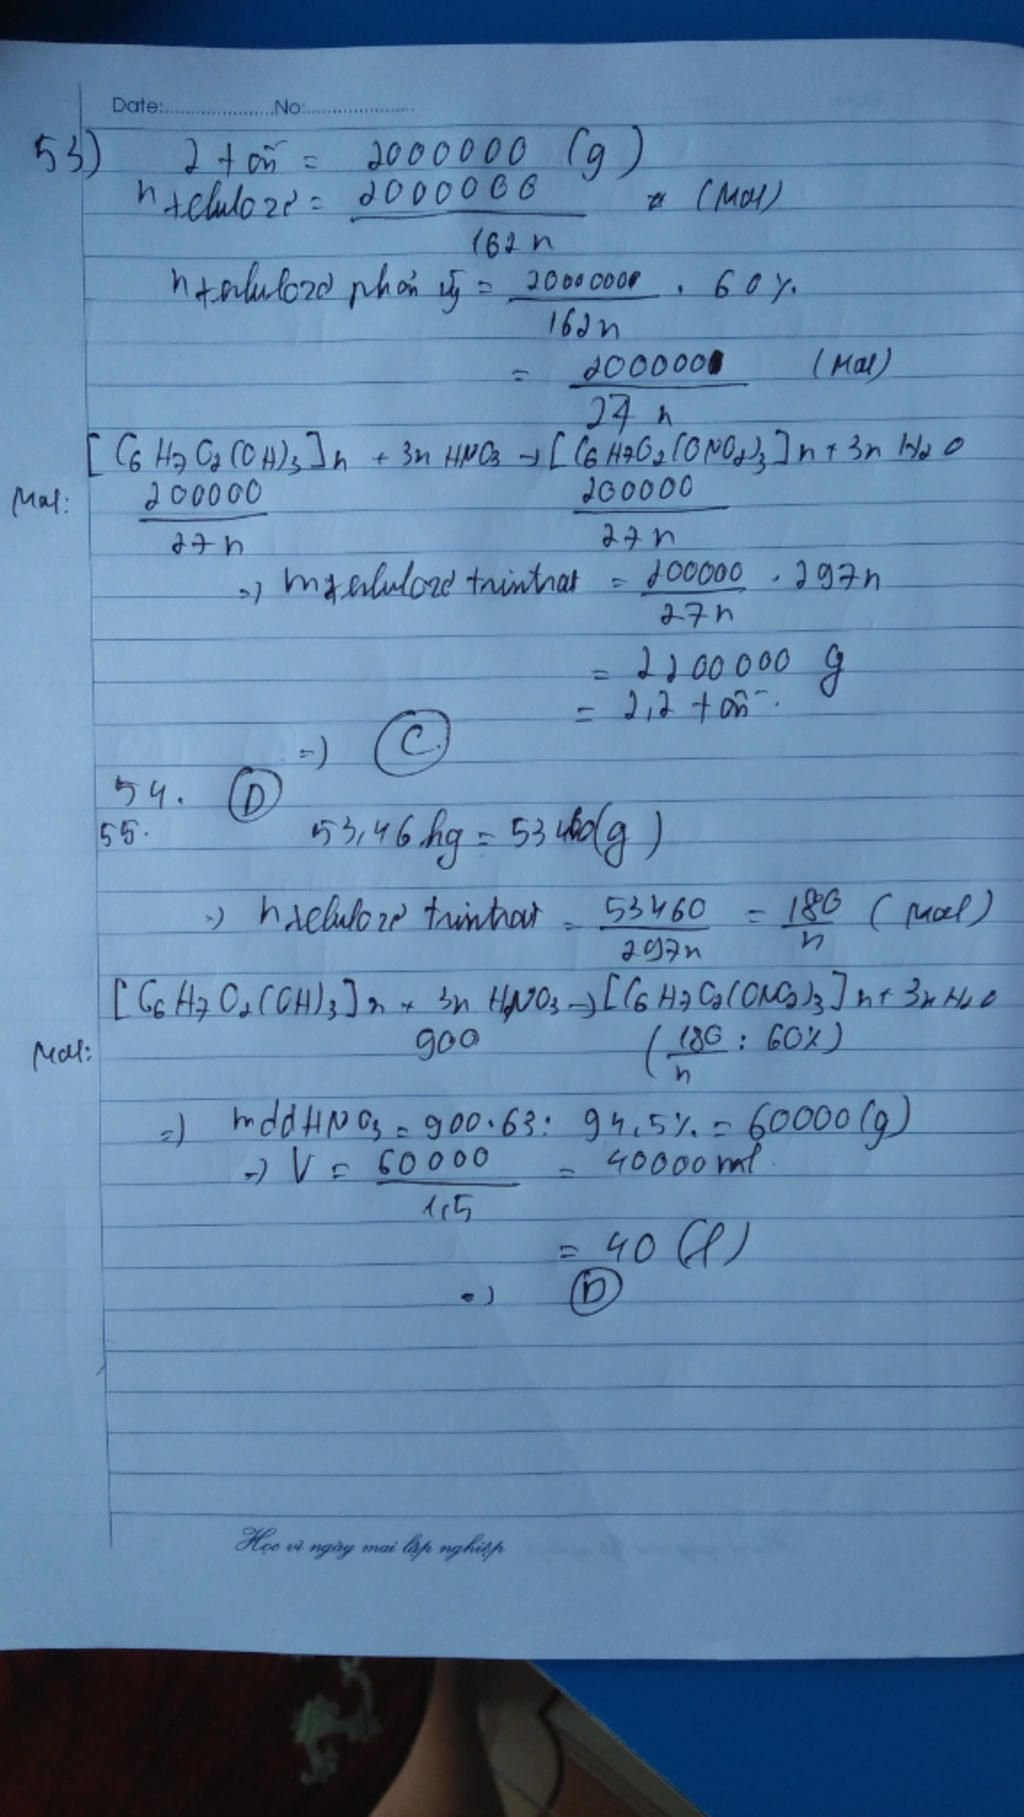 Date:......................No:......................
53) 2 tấn = 2000000 (g)
n xelulozơ = 2000000 / 162n (mol)
n xelulozơ phản ứg = 2000000 / 162n . 60%
= 200000 / 27n (mol)
[C6H7O2(OH)3]n + 3n HNO3 → [C6H7O2(ONO2)3]n + 3n H2O
Mol: 200000 / 27n 200000 / 27n
=) m xelulozơ trinitrat = 200000 / 27n . 297n
= 2200000 g
= 2,2 tấn.
=) C
54. D
55. 53,46 kg = 53460 (g)
=) n xelulozơ trinitrat = 53460 / 297n = 180 / n (mol)
[C6H7O2(OH)3]n + 3n HNO3 → [C6H7O2(ONO2)3]n + 3n H2O
Mol: 900 (180 / n : 60%)
=) mdd HNO3 = 900.63 : 94,5% = 60000 (g)
=) V = 60000 / 1,5 = 40000 ml
= 40 (l)
=) D
Học vì ngày mai lập nghiệp